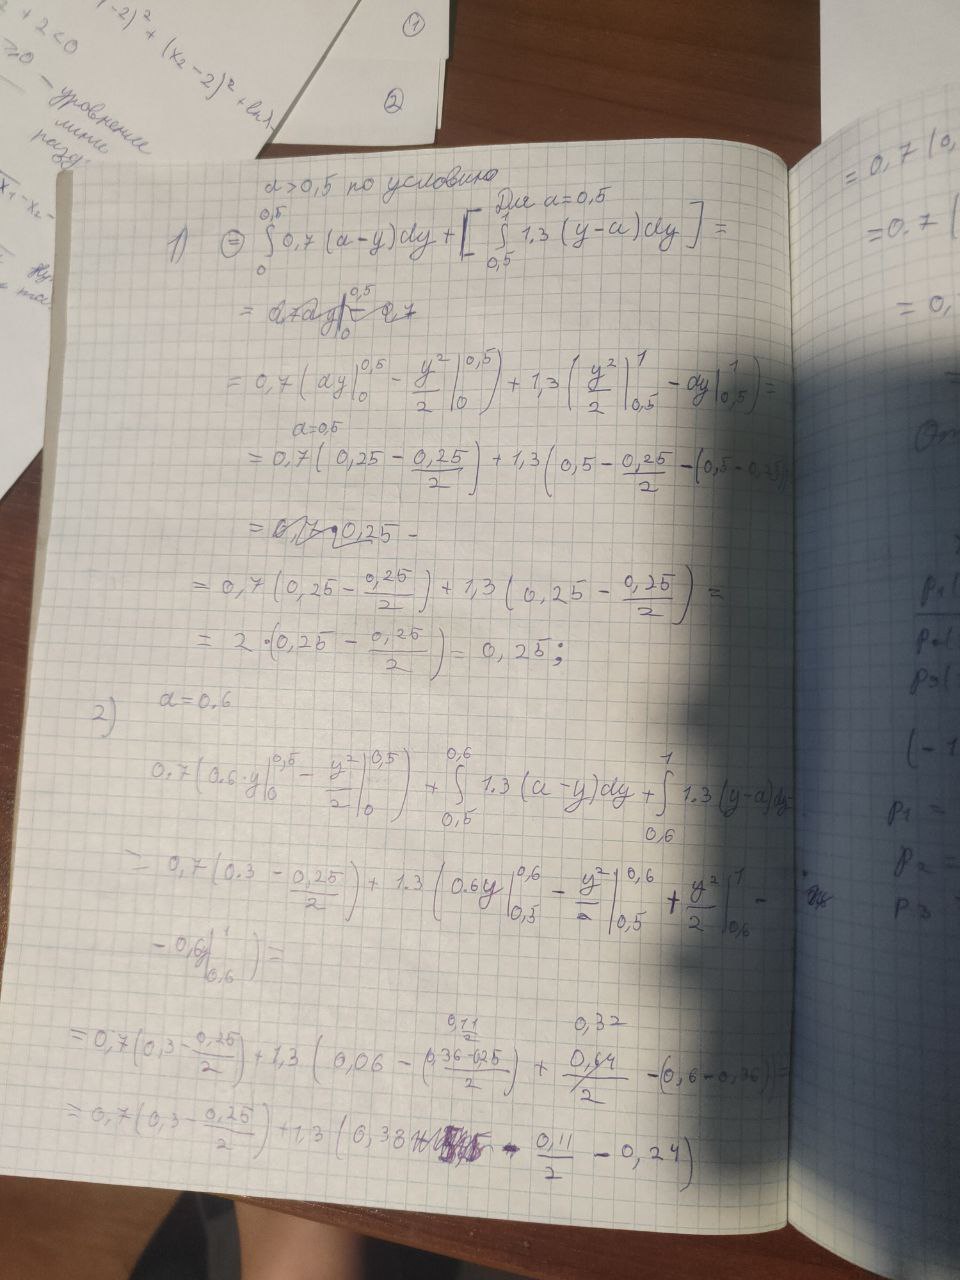 -2)² + (x₂-2)² + ln1
+2<0
≥0 - уровнение
лини
разд
x₁-x₂-
①
②
a>0,5 по условию
Для a=0,5
1) ⊜ ∫₀^0,5 0,7(a-y)dy + [ ∫_0,5^1 1,3(y-a)dy ] =
= 0,7(ay|₀^0,5 - y²/2|₀^0,5) + 1,3(y²/2|_0,5^1 - ay|_0,5^1) =
a=0,5
= 0,7(0,25 - 0,25/2) + 1,3(0,5 - 0,25/2 - (0,5-0,25)
= 0,7·0,25 -
= 0,7(0,25 - 0,25/2) + 1,3(0,25 - 0,25/2) =
= 2·(0,25 - 0,25/2) = 0,25;
2) a=0.6
0.7(0.6·y|₀^0,5 - y²/2|₀^0,5) + ∫_0,5^0,6 1.3(a-y)dy + ∫_0,6^1 1.3(y-a)dy
= 0,7(0.3 - 0,25/2) + 1.3(0.6y|_0,5^0,6 - y²/2|_0,5^0,6 + y²/2|_0,6^1 -
- 0,6y|_0,6^1) =
0,11/2 0,32
= 0,7(0,3 - 0,25/2) + 1,3(0,06 - (0,36-0,25/2) + 0,64/2 - (0,6-0,36)) =
= 0,7(0,3 - 0,25/2) + 1,3(0,38 - 0,11/2 - 0,24)
= 0,7(0,
= 0.7(
= 0,
От
P₁(
P₂(
P₃(
(-1
P₁ =
P₂ =
P₃